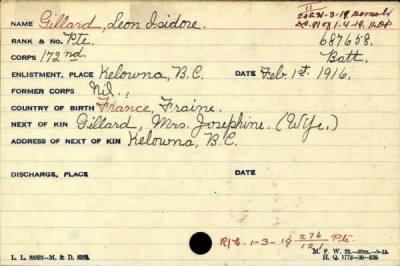 NAME Gillard, Leon Isidore.
RANK & NO. Pte. 687658.
CORPS 172nd. Batt.
ENLISTMENT, PLACE Kelowna, B.C. DATE Feb. 1st 1916.
FORMER CORPS Nil.
COUNTRY OF BIRTH France, Fraine.
NEXT OF KIN Gillard, Mrs. Josephine. (Wife.)
ADDRESS OF NEXT OF KIN Kelowna, B.C.
DISCHARGE, PLACE DATE
R/C. 1-3-19 276 Pte.
L. L. M. & D.
M. F. W.
H. Q. 1772-39-